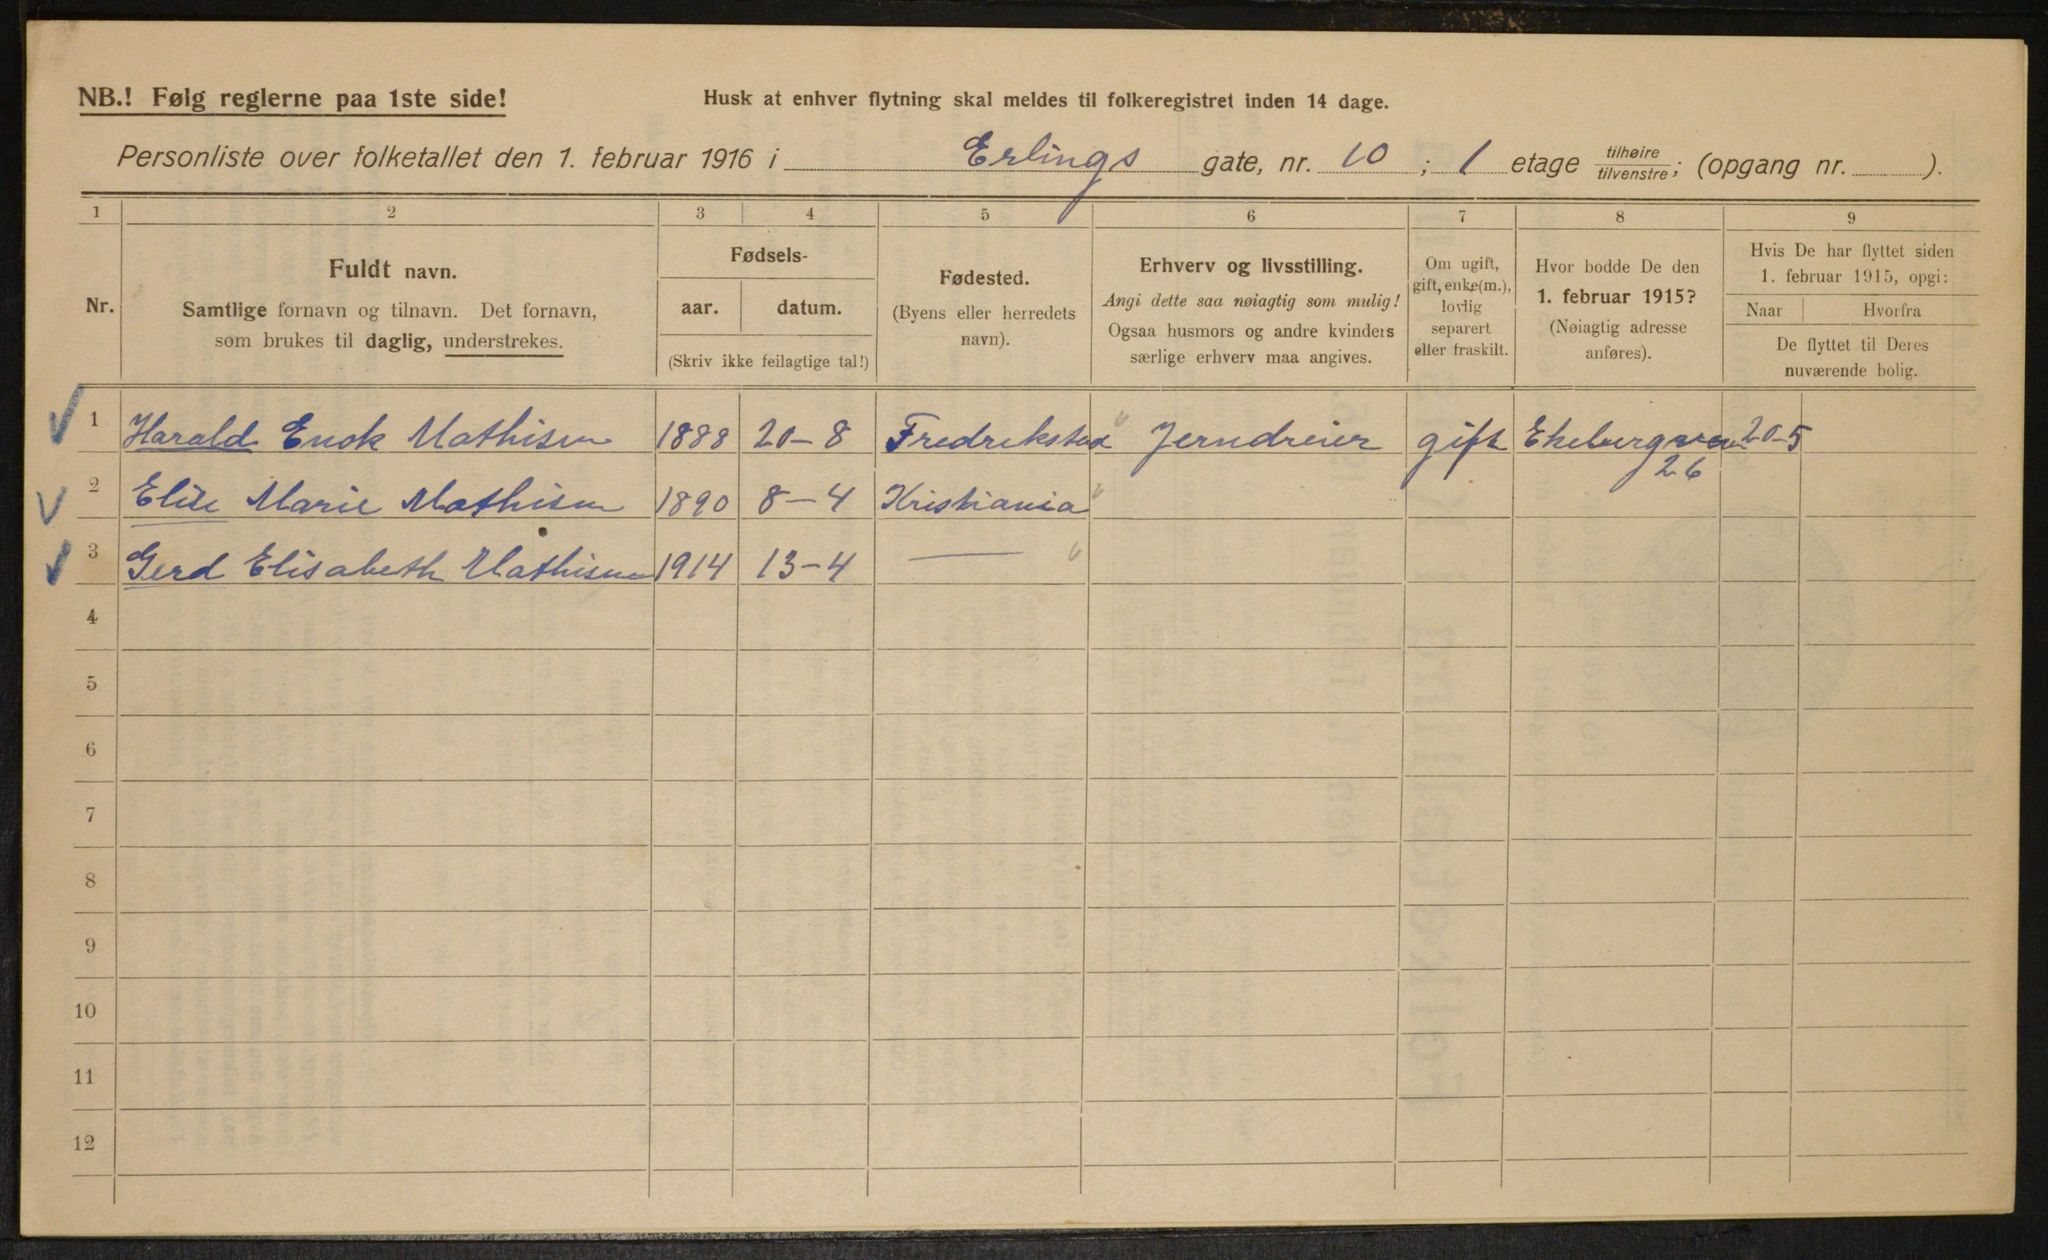 NB.! Følg reglerne paa 1ste side!
Husk at enhver flytning skal meldes til folkeregistret inden 14 dage.
Personliste over folketallet den 1. februar 1916 i Erlings gate, nr. 10 ; 1 etage tilhøire/tilvenstre; (opgang nr. ).
1 2 3 4 5 6 7 8 9
Nr.
Fuldt navn.
Samtlige fornavn og tilnavn. Det fornavn,
som brukes til daglig, understrekes.
Fødsels-
aar. datum.
(Skriv ikke feilagtige tal!)
Fødested.
(Byens eller herredets
navn).
Erhverv og livsstilling.
Angi dette saa nøiagtig som mulig!
Ogsaa husmors og andre kvinders
særlige erhverv maa angives.
Om ugift,
gift, enke(m.),
lovlig
separert
eller fraskilt.
Hvor bodde De den
1. februar 1915?
(Nøiagtig adresse
anføres).
Hvis De har flyttet siden
1. februar 1915, opgi:
Naar Hvorfra
De flyttet til Deres
nuværende bolig.
1 Harald Enok Mathisen 1888 20-8 Fredrikstad Jerndreier gift Ekebergveien 20-5
26
2 Elise Marie Mathisen 1890 8-4 Kristiania
3 Gerd Elisabeth Mathisen 1914 13-4 —
4
5
6
7
8
9
10
11
12